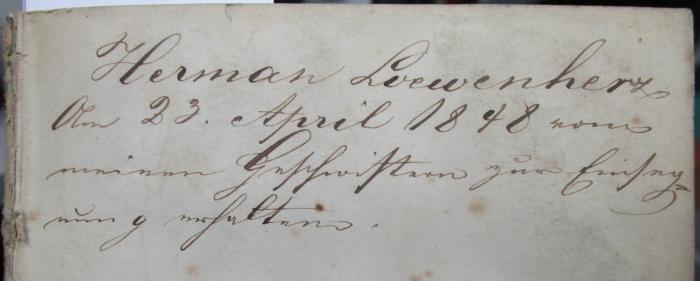 Herman Loewenherz
Am 23. April 1848 von
meinen Geschwistern zur Einseg=
nung erhalten.